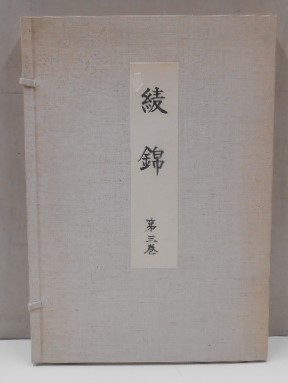 綾錦
第三巻